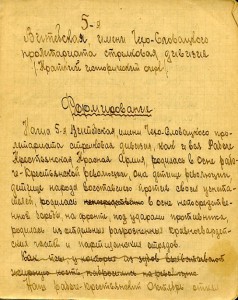 5-я
Витебская, имени Чехо-Словацкого
пролетариата стрелковая дивизия
(Краткий исторический очерк)
Формирование
Наша 5-я Витебская имени Чехо-Словацкого про-
летариата стрелковая дивизия, как и вся Рабоче-
Крестьянская Красная Армия, родилась в огне рабо-
че-Крестьянской революции, она детище революции,
детище народа восставшего против своих угнета-
телей, родилась непосредственно в огне непосредствен-
ной борьбы на фронте под ударами противника,
родилась из отдельных разрозненных красногвардей-
ских частей и партизанских отрядов.
Как
Наш рабоче-крестьянский Октябрь